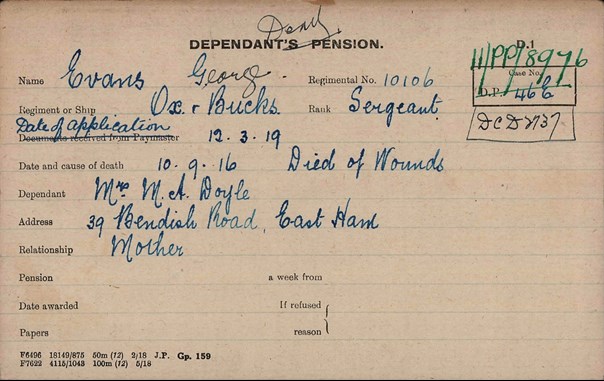 DEPENDANT'S PENSION. D.1
11/PP/8976
Name Evans George. Regimental No. 10106 Case No.
D.P. 466
Regiment or Ship Ox. & Bucks. Rank Sergeant
Date of application
Documents received from Paymaster 12.3.19
Date and cause of death 10.9.16 Died of Wounds
Dependant Mrs M.A. Doyle
Address 39 Bendish Road, East Ham
Relationship Mother
Pension a week from
Date awarded If refused
Papers reason
F6496 18149/875 50m (12) 2/18 J.P. Gp. 159
F7622 4115/1043 100m (12) 5/18